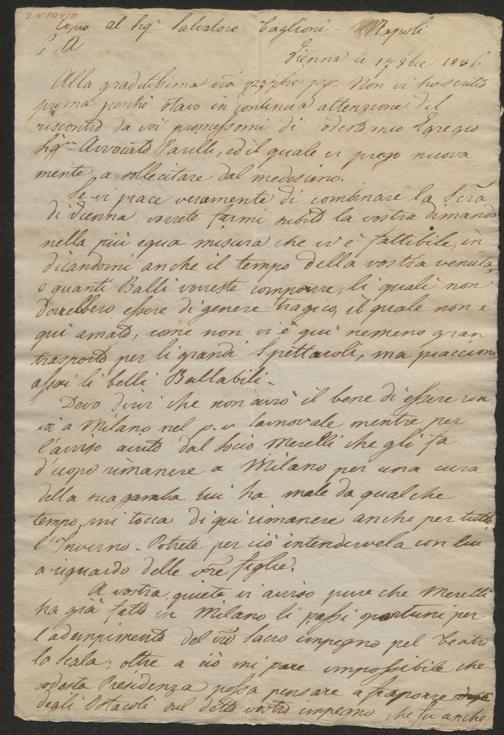 Copia al Sigr Salvatore Taglioni Napoli
S A
Vienna li 17 8bre 1836
Alla graditissima vrã Non vi ho scritto
prima perchè stavo in continua attenzione del
riscontro da voi promessomi di codesto mio Egregio
Sigr Avvocato Parelli, ed il quale vi prego nuova
mente a sollecitare dal medesimo.
Se vi piace veramente di combinare la
di Vienna vorrete farmi subito la vostra dimanda
nella più equa misura che vi è fattibile, in
dicandomi anche il tempo della vostra venuta,
e quanti Balli vorreste comporre, li quali non
dovrebbero essere di genere tragico, il quale non è
qui amato, come non vi è quì nemeno gran
trasporto per li grandi Spettacoli, ma piacciono
assai li belli Ballabili.
Devo dirvi che non avrò il bene di essere con
voi a Milano nel p. v. Carnovale mentre per
l'avviso avuto dal Socio Merelli che gli fa
d'uopo rimanere a Milano per una cura
della sua gamba cui ha male da qualche
tempo, mi tocca di qui rimanere anche per tutto
l'Inverno. Potrete per ciò intendervela con lui
a riguardo delle vre figlie.
A vostra quiete vi avviso pure che Merelli
ha già fatto in Milano li passi oportuni per
l'adempimento del vrò sacro impegno pel Teatro
la Scala; oltre a ciò mi pare impossibile che
codesta Presidenza possa pensare a fraporre
degli Ostacoli sul detto vostro impegno che fu anche